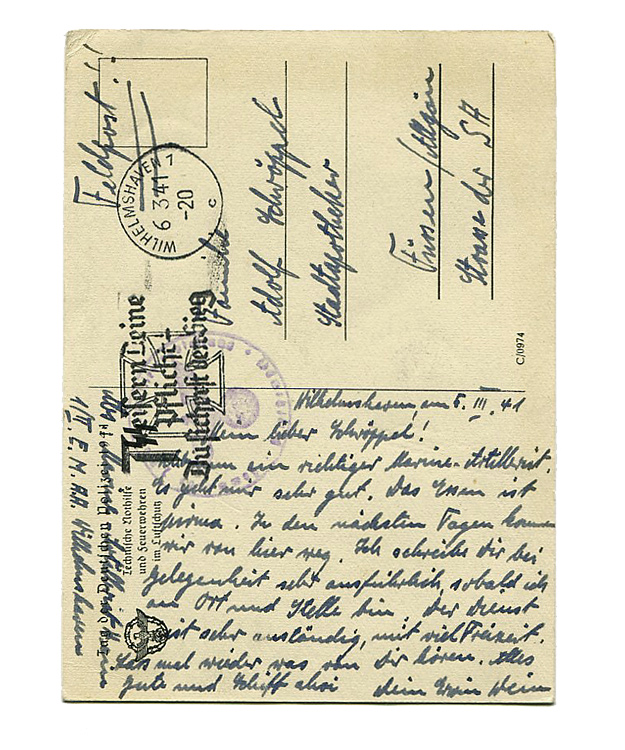 Feldpost!!
WILHELMSHAVEN 1
6.3.41
-20
c
Familie
Adolf Schöppel
Stadtapotheker
Füssen/Allgäu
Strasse der SA
C/0974
Deine
Pflicht
Du sicherst den Sieg
Wilhelmshaven, am 5. III. 41
Mein lieber Schöppel!
nun ein richtiger Marine-Artillerist.
Es geht mir sehr gut. Das Essen ist
prima. In den nächsten Tagen kommen
wir von hier weg. Ich schreibe Dir bei
Gelegenheit sehr ausführlich, sobald ich
an Ort und Stelle bin. Der Dienst
ist sehr anständig, mit viel Freizeit.
Lass mal wieder was von Dir hören. Alles
Gute und Schiff ahoi dein Erwin
Technische Nothilfe
und Feuerwehren
im Luftschutz
E. M. A. A. Wilhelmshaven